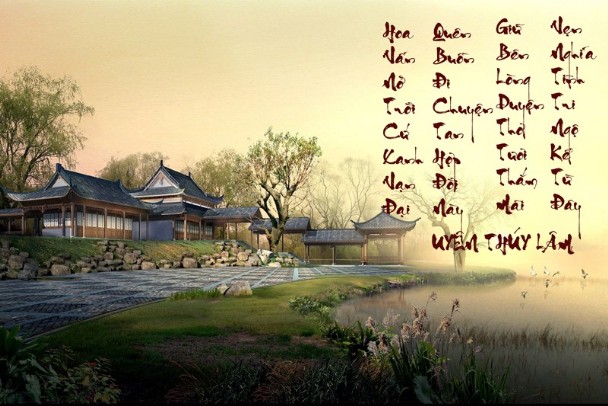 Hoa Vẫn Nở Trời Cứ Xanh Vạn Đại
Quên Buồn Đi Chuyện Tan Hợp Đội Mây
Giữ Bên Lòng Duyên Thơ Tươi Thắm Mãi
Vẹn Nghĩa Tình Tri Ngộ Kể Từ Đây
UYÊN THÚY LÂM